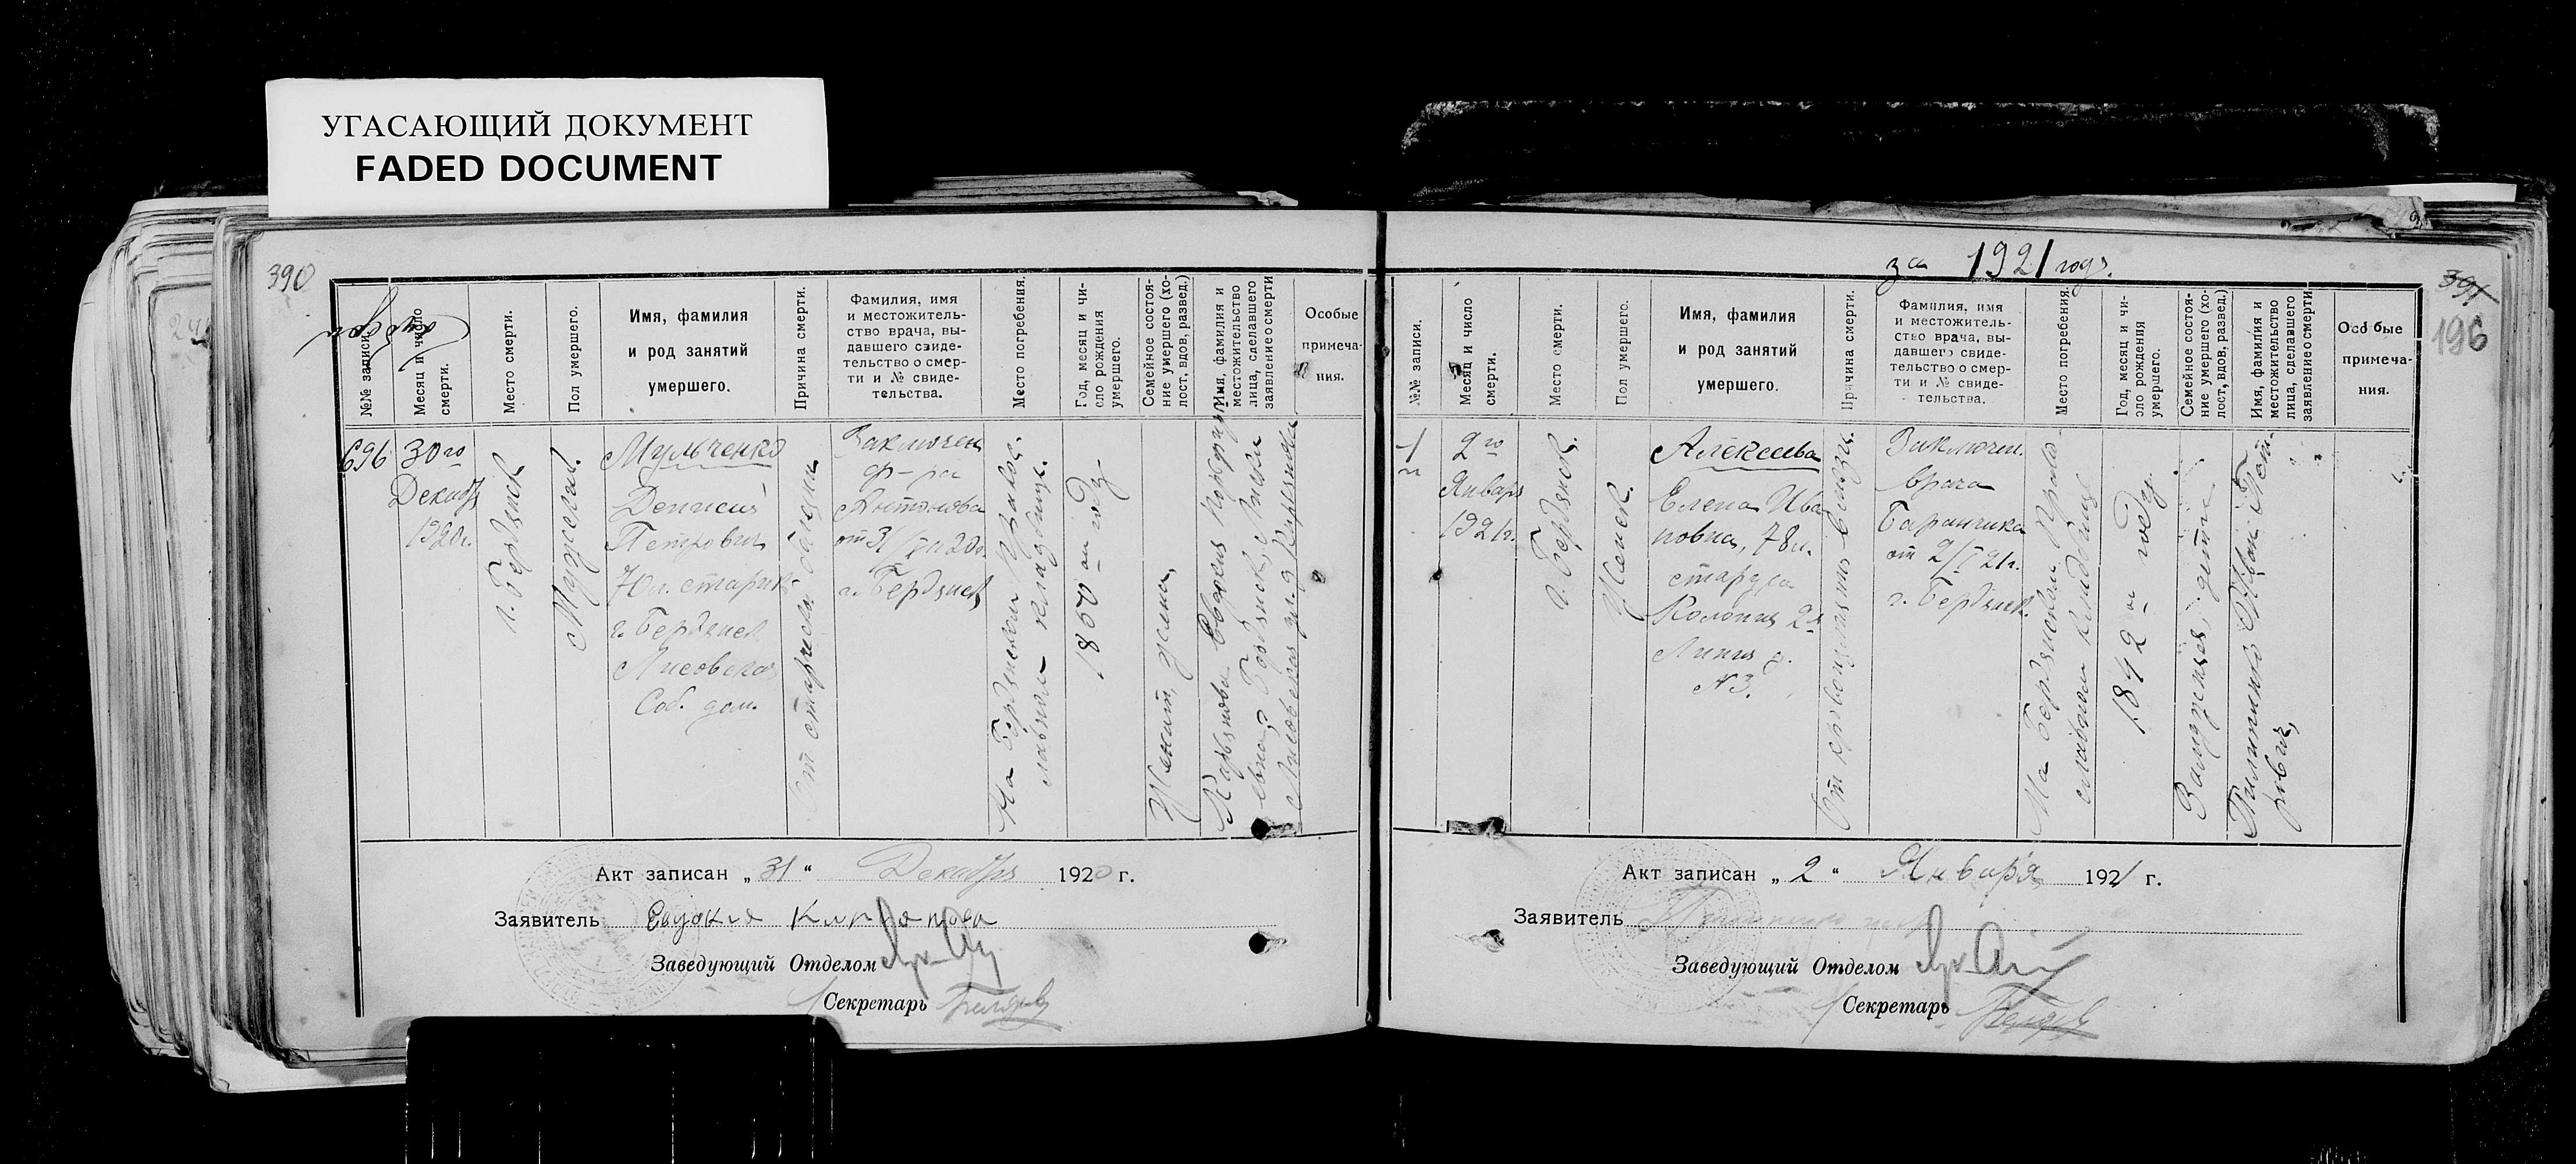 УГАСАЮЩИЙ ДОКУМЕНТ
FADED DOCUMENT
390
№№ записи.
Месяц и число смерти.
Место смерти.
Пол умершего.
Имя, фамилия
и род занятий
умершего.
Причина смерти.
Фамилия, имя
и местожитель-
ство врача, вы-
давшего свиде-
тельство о смер-
ти и № свиде-
тельства.
Место погребения.
Год, месяц и чи-
сло рождения
умершего.
Семейное состоя-
ние умершего (хо-
лост, вдов, развед.)
Имя, фамилия и
местожительство
лица, сделавшего
заявление о смерти
Особые
примеча-
ния.
696
30го
Декабр
1920г.
г. Бердянск
Мужской.
Мульченко
Денисий
Петрович
70 л. старик
г. Бердянск
Лисовская
Соб. дом.
От старческой
Заключен
ф-ра
Антонова
от 31/XII 20г.
г. Бердянск
На Бердянском Правос-
лавном кладбище.
1850 ом году
Женат,
Евдокия
г. Бердянск,
Лисовская ул. д.
Акт записан „ 31 “ Декабря 1920 г.
Заявитель Евдокия
Заведующий Отделом
Секретарь
за 1921 год.
391
196
№№ записи.
Месяц и число
смерти.
Место смерти.
Пол умершего.
Имя, фамилия
и род занятий
умершего.
Причина смерти.
Фамилия, имя
и местожитель-
ство врача, вы-
давшего свиде-
тельство о смер-
ти и № свиде-
тельства.
Место погребения.
Год, месяц и чи-
сло рождения
умершего.
Семейное состоя-
ние умершего (хо-
лост, вдов, развед.)
Имя, фамилия и
местожительство
лица, сделавшего
заявление о смерти
Особые
примеча-
ния.
1
2го
Январь
1921г.
г. Бердянск.
Женск.
Алексеева
Елена Ива
новна, 78 л.
старуха
Колония 2я
Линия д.
№ 3.
От кровоизлияния в мозг.
Заключен.
врача
Баранчика
от 2/I 21г.
г. Бердянск.
На Бердянском Право-
славном кладбище
1842 м году.
Замужняя, дети
Иван Пет-
рович,
Акт записан „ 2 “ Января 1921 г.
Заявитель
Заведующий Отделом
Секретарь